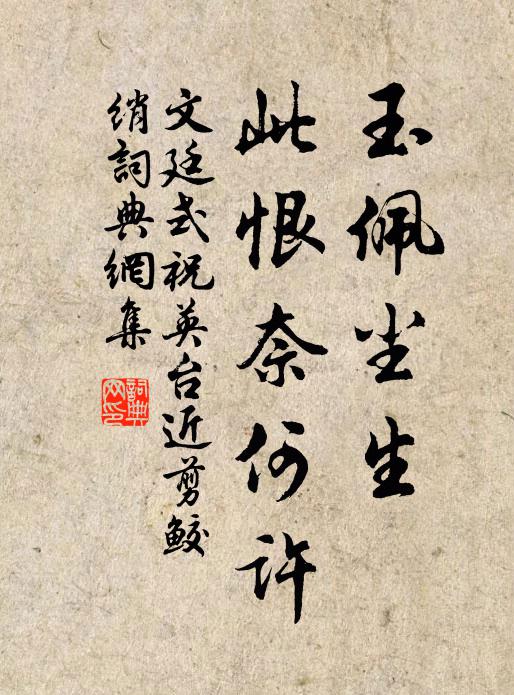 玉佩尘生
此恨奈何许
文廷式祝英台近剪鲛
绡詞典網集
詞典網印